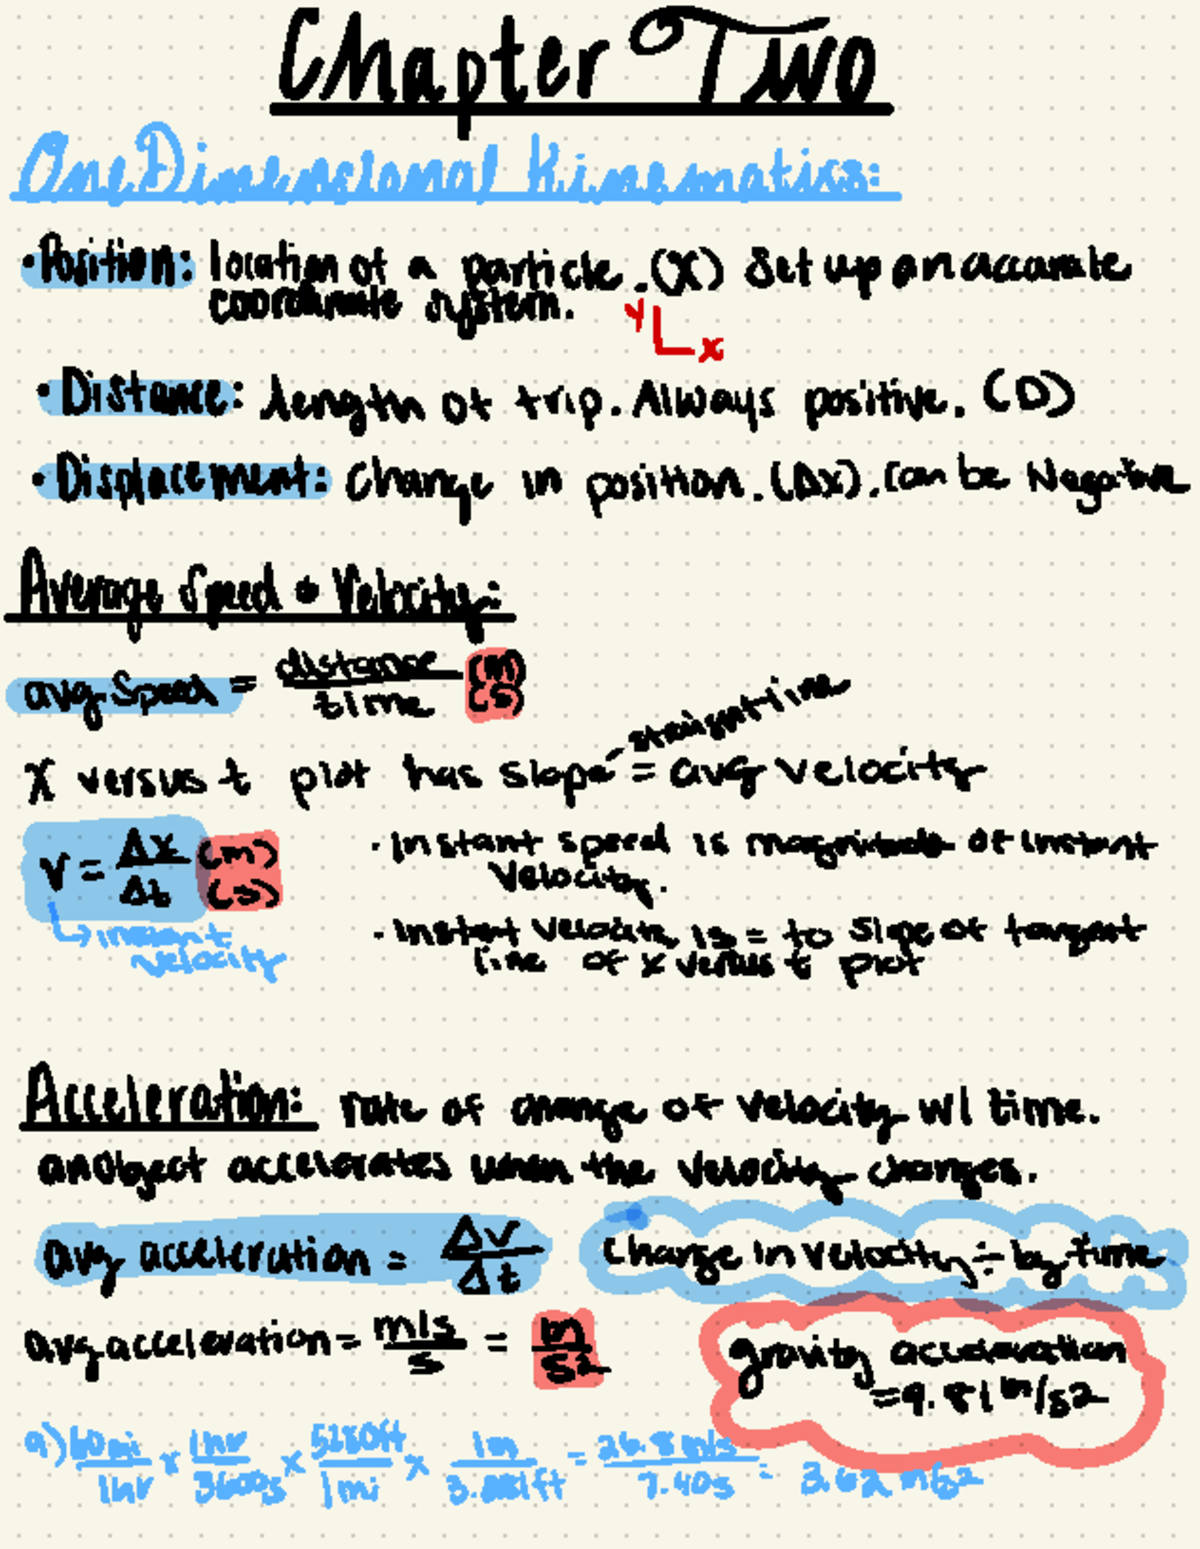 Chapter Two
One Dimensional Kinematics:
• Position: location of a particle. (X) Set up an accurate
coordinate system.
y
x
• Distance: length of trip. Always positive. (D)
• Displacement: Change in position. (Δx). Can be Negative
Average Speed + Velocity:
avg speed = distance (m)
time (s)
straight line
X versus t plot has slope = avg velocity
v = Δx (m)
Δt (s)
↳ instant
velocity
• Instant speed is magnitude of instant
velocity.
- Instant velocity is = to slope of tangent
line of x versus t plot
Acceleration: rate of change of velocity w/ time.
an object accelerates when the velocity changes.
avg acceleration = Δv
Δt
Change in velocity ÷ by time
avg acceleration = m/s = m
s s2
gravity acceleration
= 9.81 m/s2
a) 60mi x 1hr x 5280ft x 1m = 26.8 m/s = 3.62 m/s2
1hr 3600s 1mi 3.281ft 7.40s